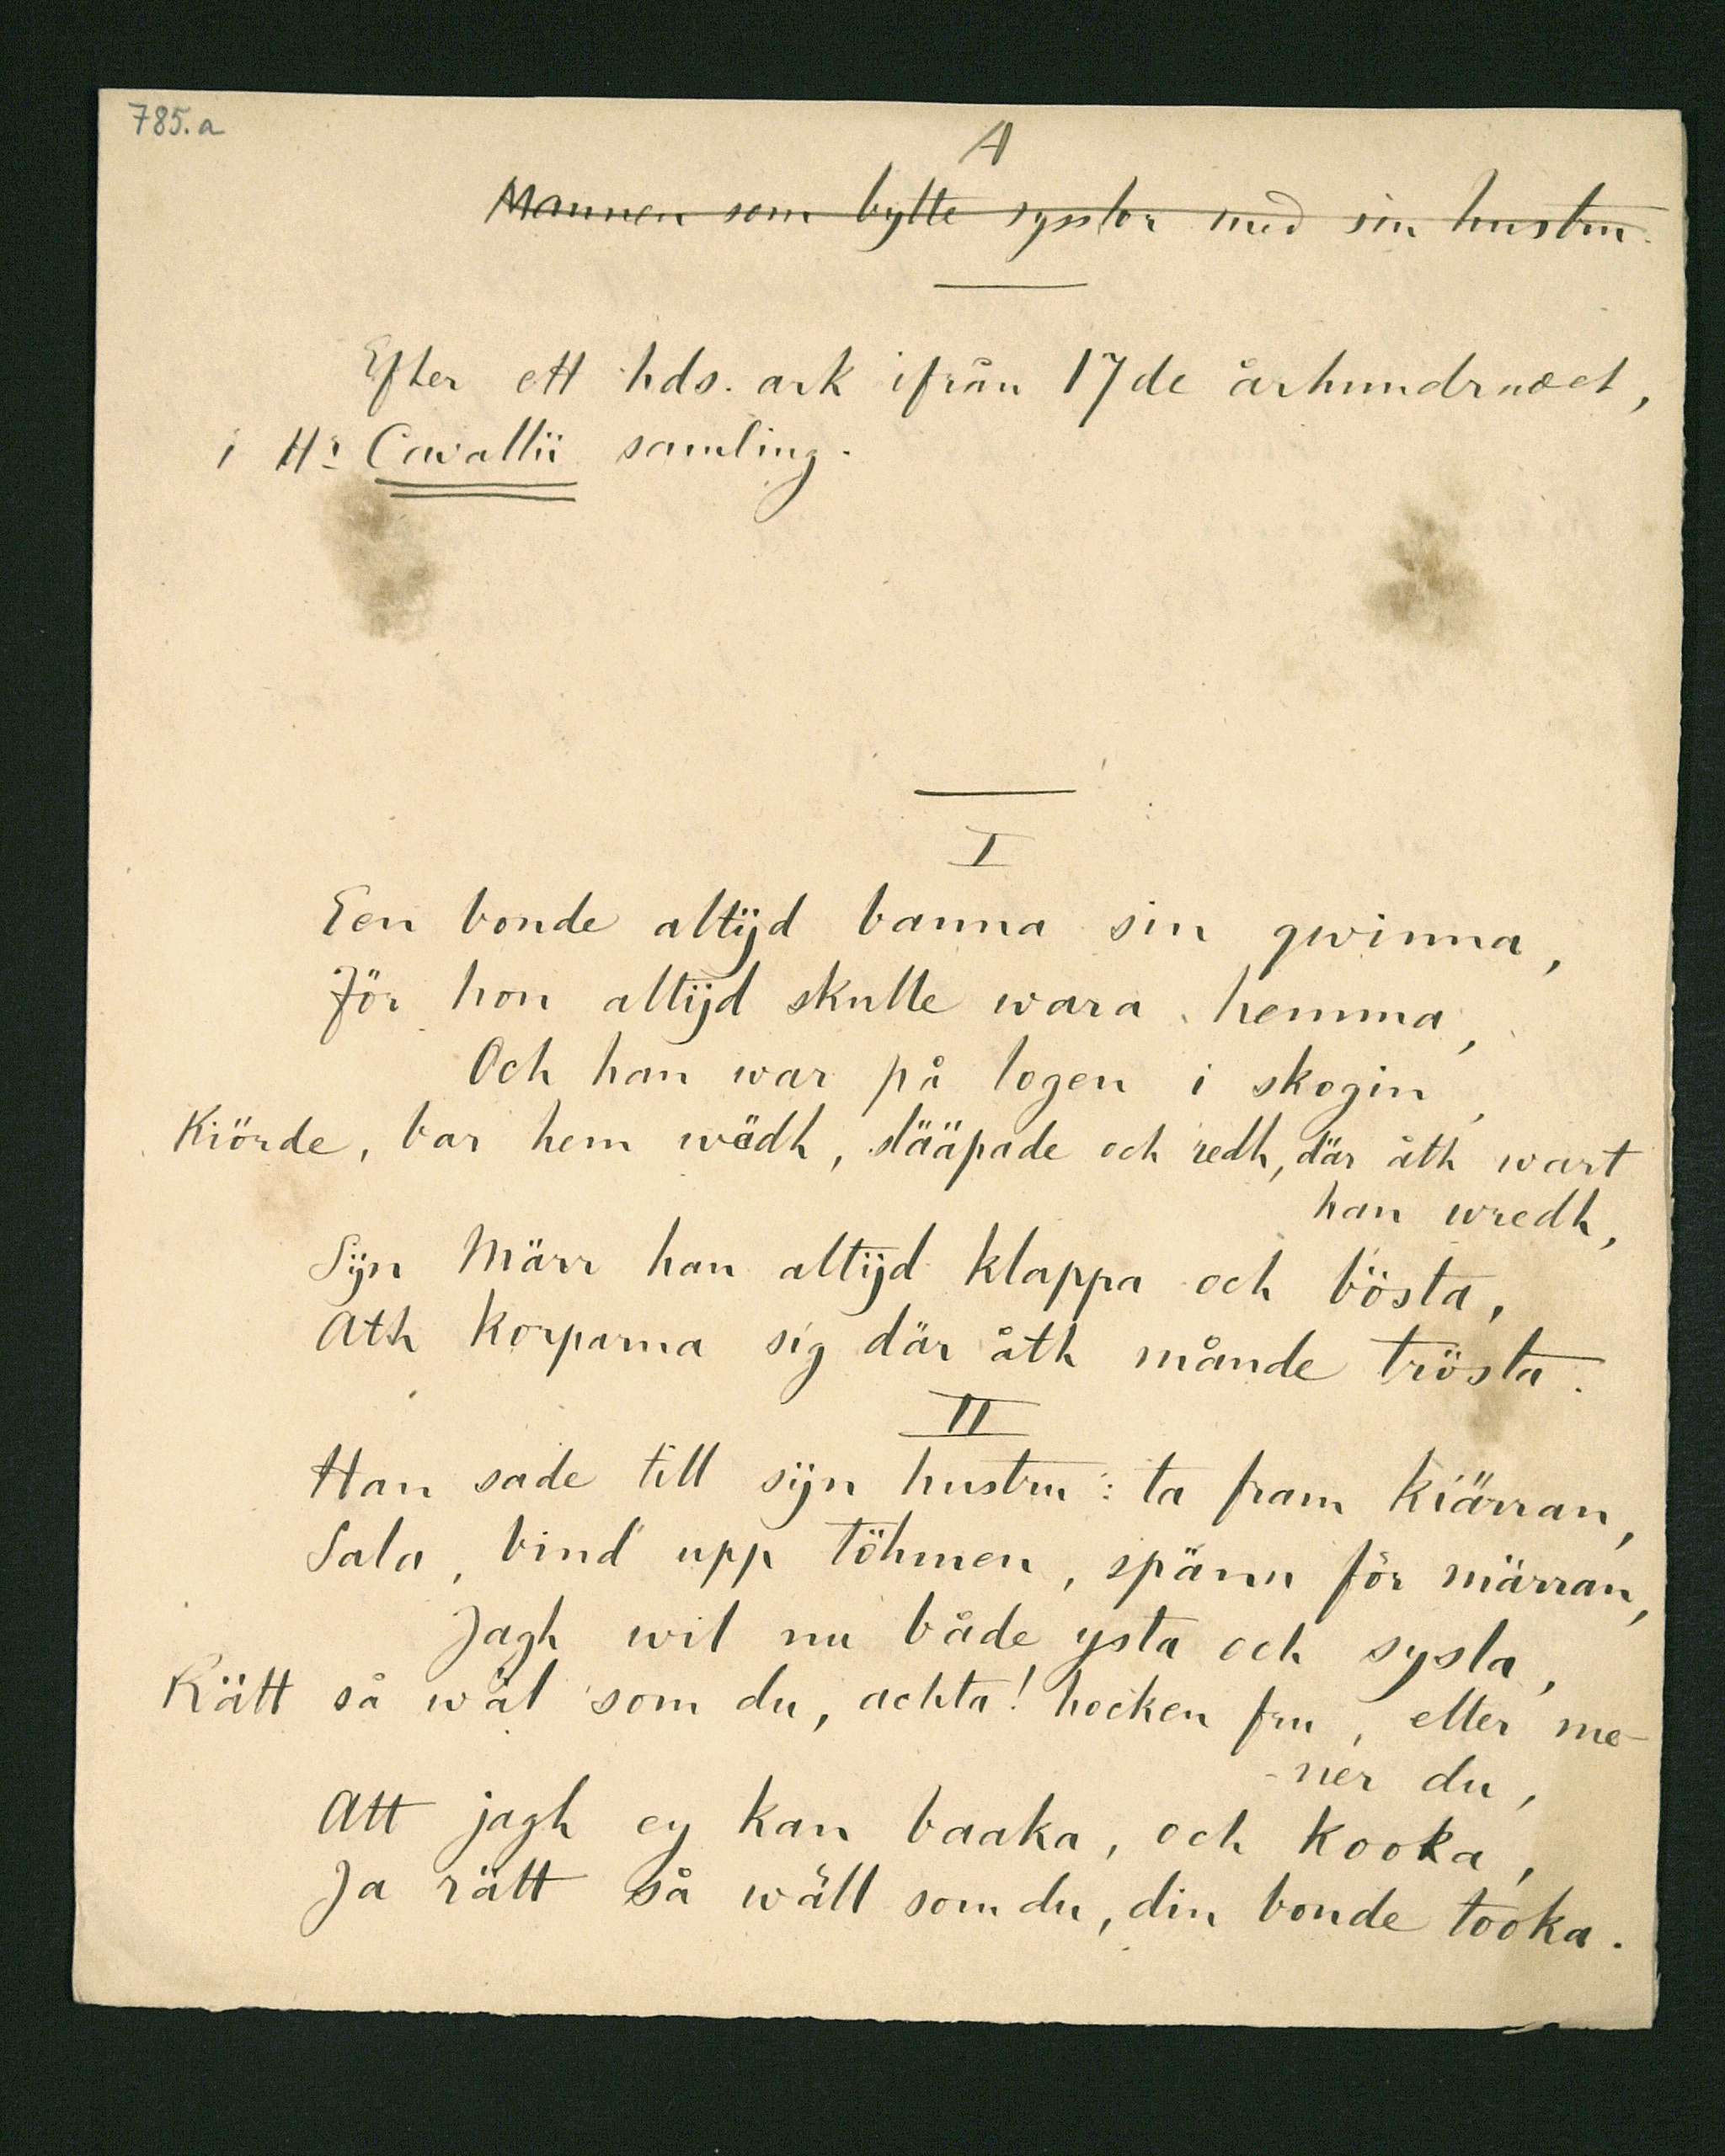 785.a
A
Mannen som bytte sysslor med sin hustru.
Efter ett hds. ark ifrån 17de århundradet,
i Hr Cavallii samling.
I
Een bonde altijd banna sin qwinna,
För hon altijd skulle wara hemma,
Och han war på logen i skogin,
Kiörde, bar hem wädh, slääpade och redh, där åth wart
han wredh,
Sijn Märr han altijd klappa och bösta,
Ath korparna sig där åth månde trösta.
II
Han sade till sijn hustru: ta fram kiärran,
Sala, bind upp töhmen, spänn för märran,
Jagh wil nu både ysta och sysla,
Rätt så wäl som du, achta! hocken fru, eller me-
-ner du,
Att jagh ey kan baaka, och kooka,
Ja rätt så wäll som du, din bonde tooka.